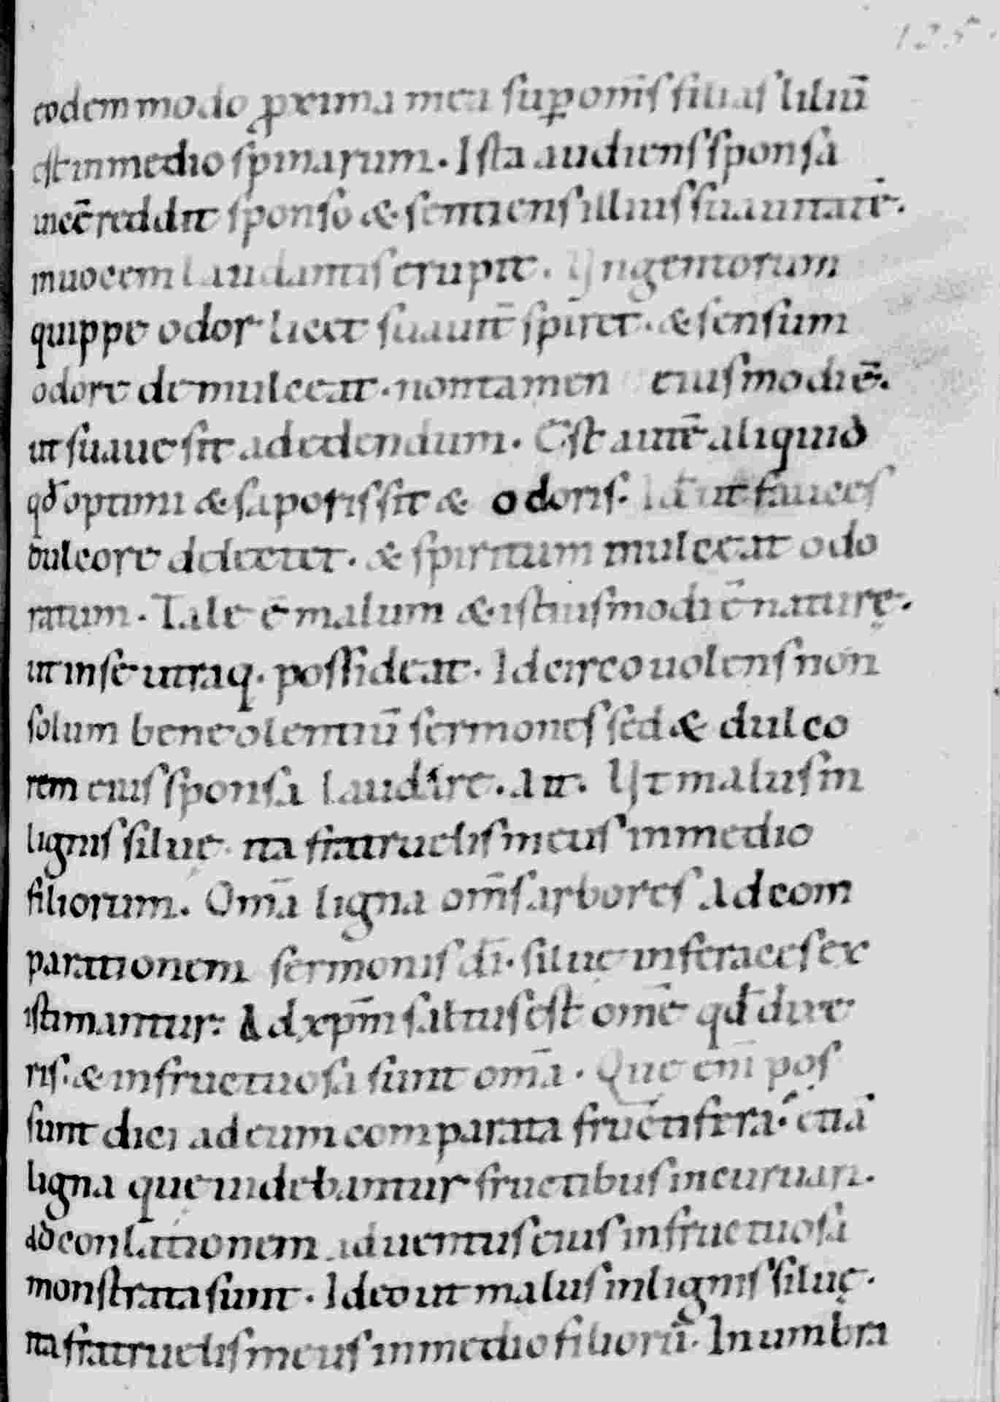 125.
eodem modo ꝓxima mea sup omīs filias liliū
est in medio spinarum. Ista audiens sponsa
uicē reddit sponso & sentiens illius suauitatē.
in uocem laudantis erupit. Vngentorum
quippe odor licet suauit̄ spiret. & sensum
odore demulceat. non tamen eiusmodi ē.
ut suaue sit ad edendum. Est autē aliquid
qđ optimi & saporis sit & odoris. Id ut fauces
dulcore delectet. & spiritum mulceat odo
ratum. Tale ē malum & istiusmodi ē naturę.
ut in se utraq. possideat. Idcirco uolens non
solum beneolentiū sermones sed & dulco
rem eius sponsa laudare. ait. Vt malus in
lignis siluę ita fratruelis meus in medio
filiorum. Omā ligna om̄s arbores ad com
parationem sermonis dī. siluę inferaces ex
istimantur. Ad xp̄m saltus est omē qđ dixe
ris. & infructuosa sunt omā. Quę enī pos
sunt dici ad eum comparata fructifera. etiā
ligna quę uidebantur fructibus incuruari.
ad conlationem aduentus eius infructuosa
monstrata sunt. Ideo ut malus in lignis siluę.
ita fratruelis meus in medio filiorū. In umbra